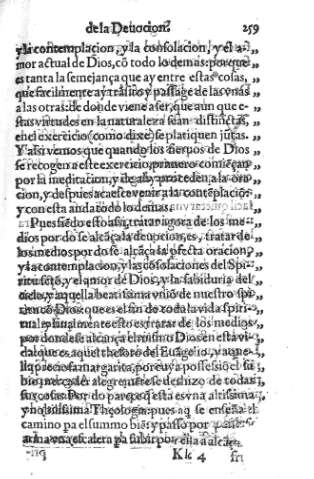 de la Deuocion. 259
y la contemplacion, y la consolacion, y el a- „
mor actual de Dios, cõ todo lo demas: porque „
es tanta la semejança que ay entre estas cosas, „
que facilmente ay trãsito y passage de las vnas „
a las otras: de donde viene a ser, que aun que e- „
stas virtudes en la naturaleza seãn distinctas, „
en el exercicio (como dixe) se platiquen jũtas. „
Y assi vemos que quando los sieruos de Dios „
se recogen a este exercicio, primero comiẽçan „
por la meditacion, y de alli proceden a la ora- „
cion, y despues acaesce venir a la contẽplaciõ: „
y con esta anda todo lo demas.
Pues siẽdo esto assi, tratar agora de los me- „
dios por do se alcãça la deuocion, es, tratar de „
los medios por do se alcãça la pfecta oracion, „
y la contemplacion, y las cõsolaciones del Spi- „
ritu sctõ, y el amor de Dios, y la sabiduria del „
cielo, y aquella beatissima vniõ de nuestro spi- „
ritu cõ Dios, que es el fin de toda la vida spiri- „
tual: y finalmente esto es tratar de los medios „
por donde se alcança el mismo Dios en esta vi- „
da: que es aquel thesoro del Euãgelio, y aque- „
lla preciosa margarita, por cuya possesiõ el sa- „
bio mercader alegremẽte se deshizo de todas „
sus cosas. Por do parece q̃ esta es vna altissima „
y nobilissima Theologia: pues aq̃ se enseña el
camino pa el summo biẽ: y passo por
arma vna escalera pa subir por ella a alcãça
Kk 4 fri